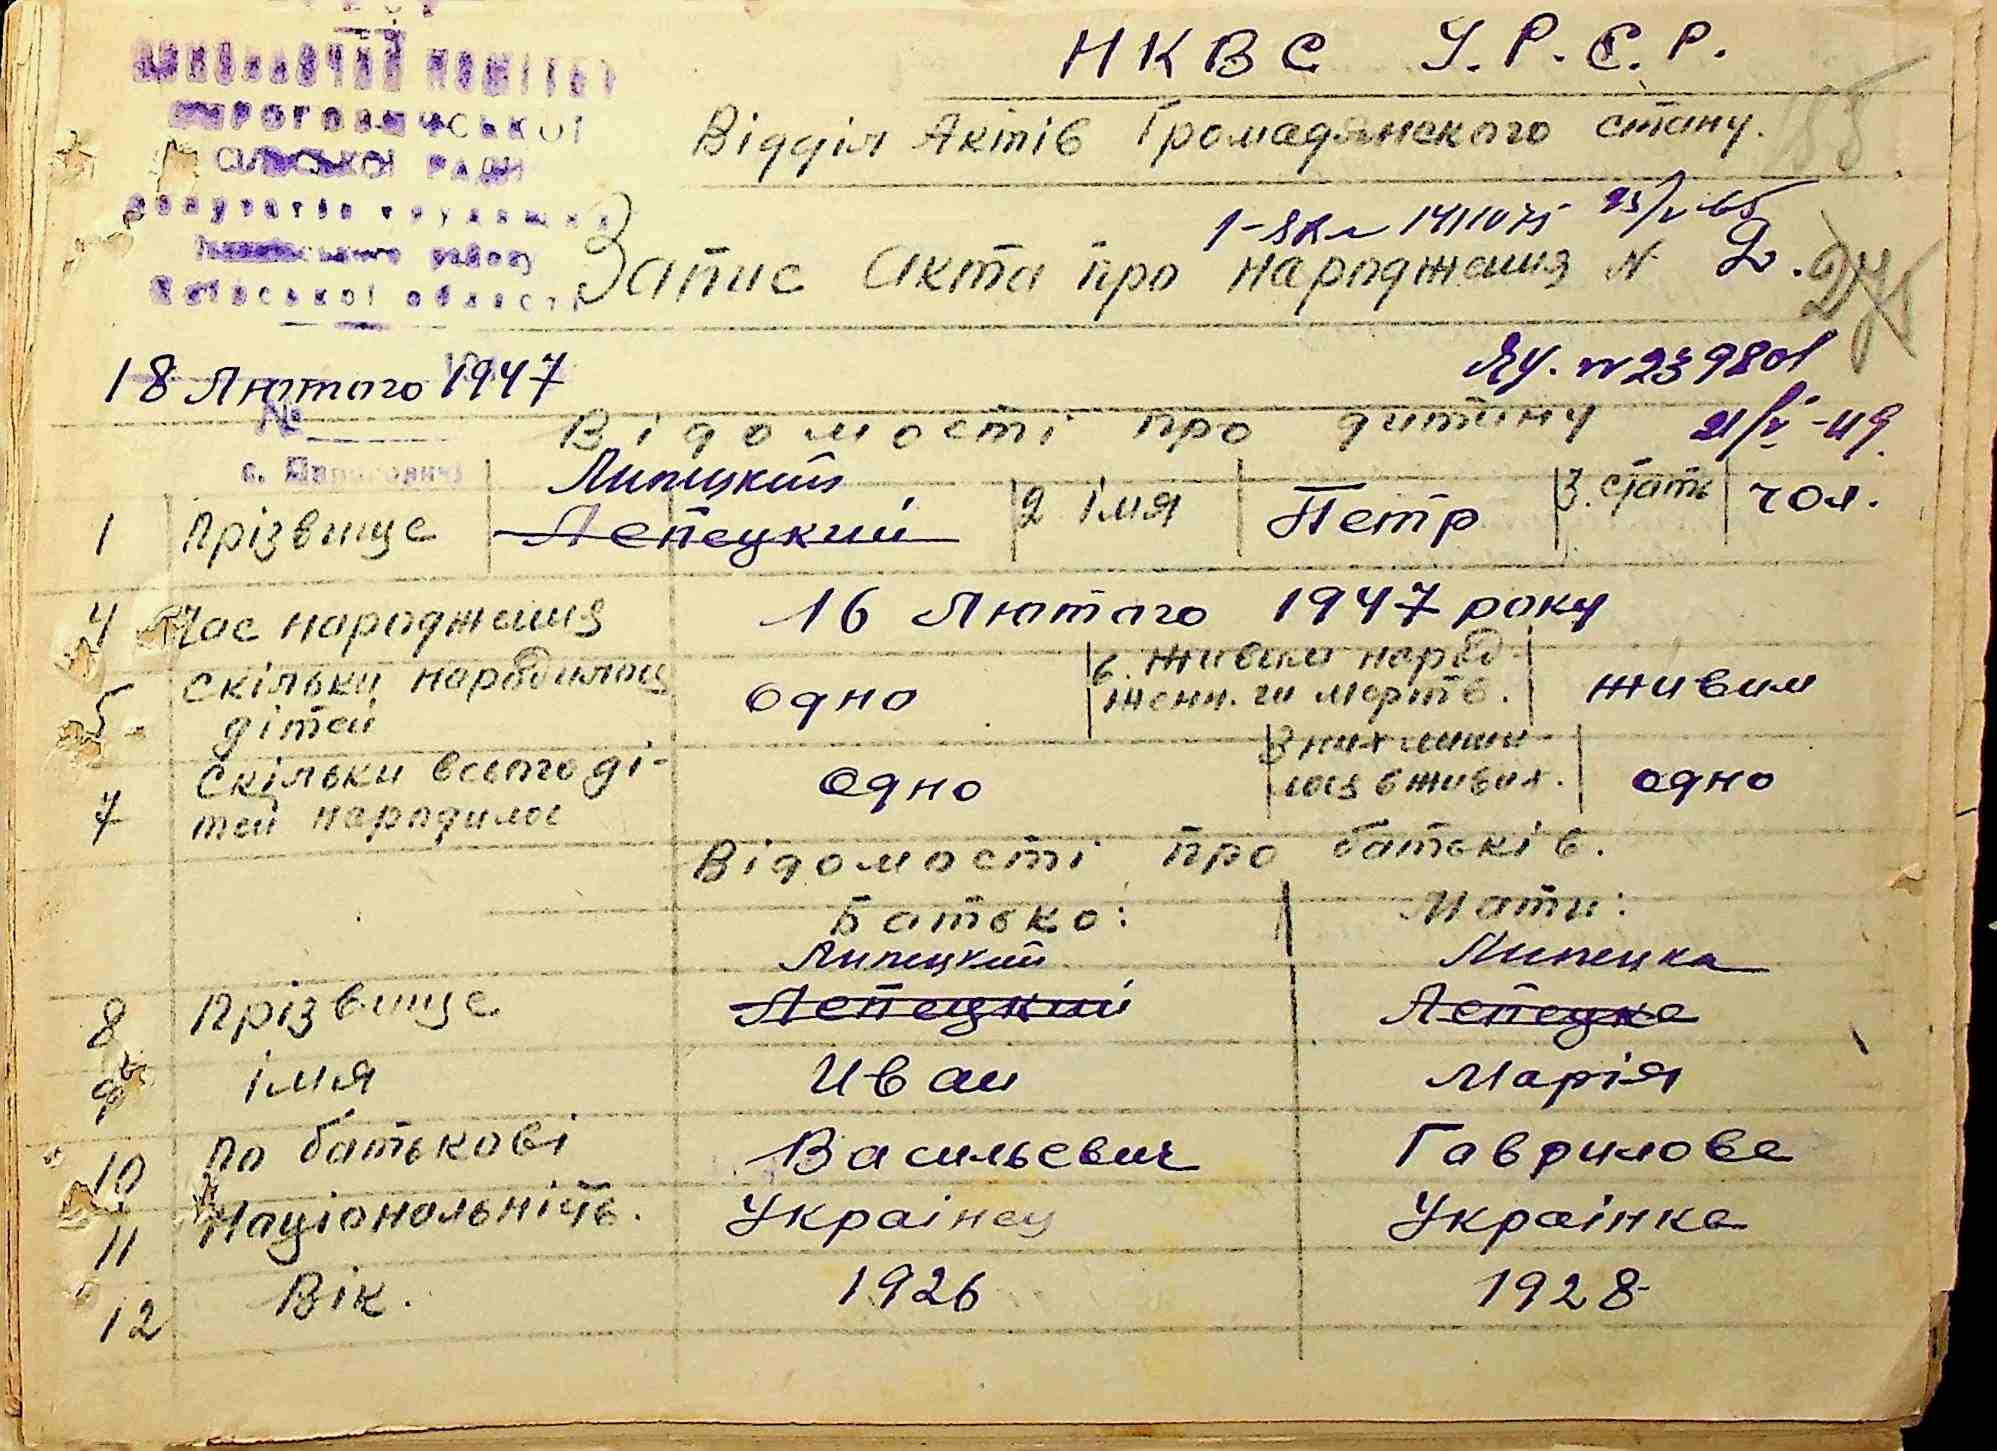 ВИКОНАВЧИЙ КОМІТЕТ
ПИРОГОВИЧСЬКОЇ
СІЛЬСЬКОЇ РАДИ
депутатів трудящих
району
Київської області
НКВС У.Р.С.Р.
Відділ Актів Громадянского стану.
23/V-65
Запис Акта про народження N 2.
18 Лютого 1947
№
ЯУ. N 239801
21/V-49.
Відомості про дитину
Липецкий
1 Прізвище Лепецкий 2 імя Петр 3. стать чол.
4 Час народження 16 Лютого 1947 року
5 Скільки народилось дітей одно 6. Живим народ-
женн. чи мертв. живим
7 Скільки всього ді-
тей народилос одно З них лиши-
лось в живих. одно
Відомості про батьків.
Батько: Мати:
Липецкий Липецка
8 Прізвище Лепецкий Лепецка
9 імя Иван Марія
10 По батькові Васильевич Гаврилова
11 Національність. Українец Українка
12 Вік. 1926 1928